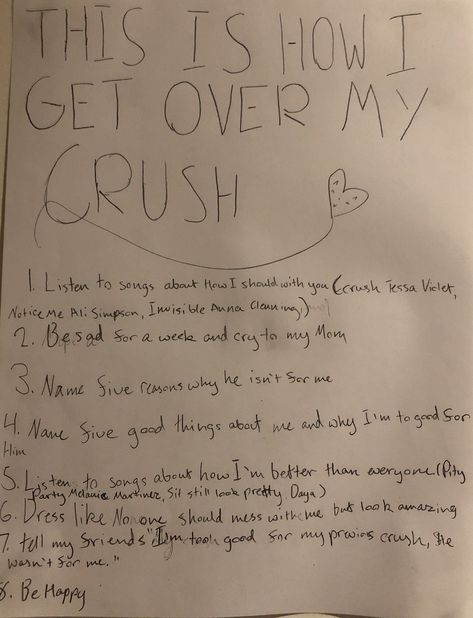 THIS IS HOW I
GET OVER MY
CRUSH
1. Listen to songs about How I should with you (crush Tessa Violet,
Notice Me Ali Simpson, Invisible Anna Clenning,)
2. Be sad for a week and cry to my Mom
3. Name five reasons why he isn't for me
4. Name five good things about me and why I'm to good for
Him
5. Listen to songs about how I'm better than everyone (Pity
Party Melanie Martinez, Sit still look pretty Daya)
6. Dress like No one should mess with me but look amazing
7. tell my friends "I'm too good for my prvios crush, He
wasn't for me."
8. Be Happy